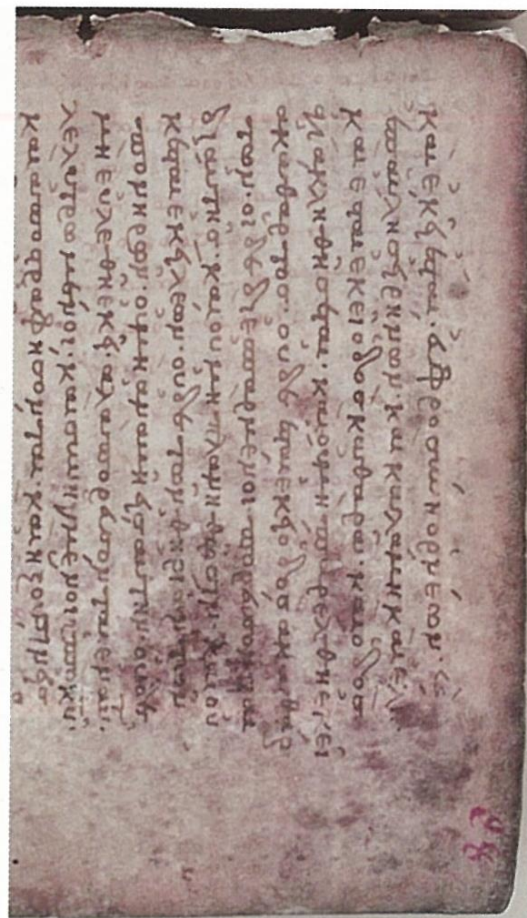 καὶ ἐκεῖ ἔσται εὐφροσύνη ὀρνέων· κ
ἔπαυλης σειρήνων· καὶ καλάμη καὶ ἕλη
καὶ ἔσται ἐκεῖ ὁδὸς καθαρά· καὶ ὁδὸς
κληθήσεται· καὶ οὐ μὴ παρέλθη ἐκεῖ
ἀκάθαρτος· οὐδὲ ἔσται ἐκεῖ ὁδὸς ἀκάθαρ
τος· οἱ δὲ διεσπαρμένοι πορεύσονται
δι αὐτῆς· καὶ οὐ μὴ πλανηθῶσιν· καὶ οὐ
κ ἔσται ἐκεῖ λέων· οὐδὲ τῶν θηρίων τῶν
πονηρῶν· οὐ μὴ ἀναβῆ εἰς αὐτὴν· οὐδὲ
μὴ εὑρεθῆ ἐκεῖ· ἀλλὰ πορεύσονται ἐν αὐτῆ
λελυτρωμένοι· καὶ συνηγμένοι ὑπὸ κυ·
καὶ ἀποστραφήσονται καὶ ἥξουσιν εἰς